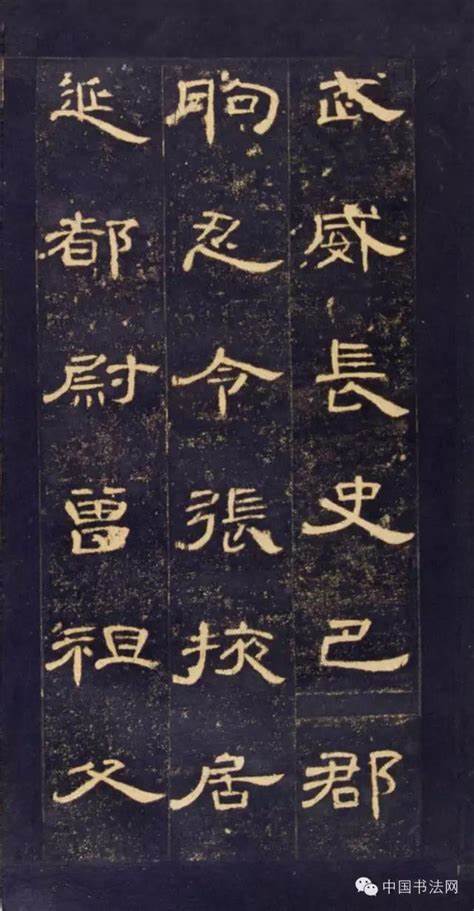 武威長史巴郡
朐忍令張掖居
延都尉曾祖父
中国书法网